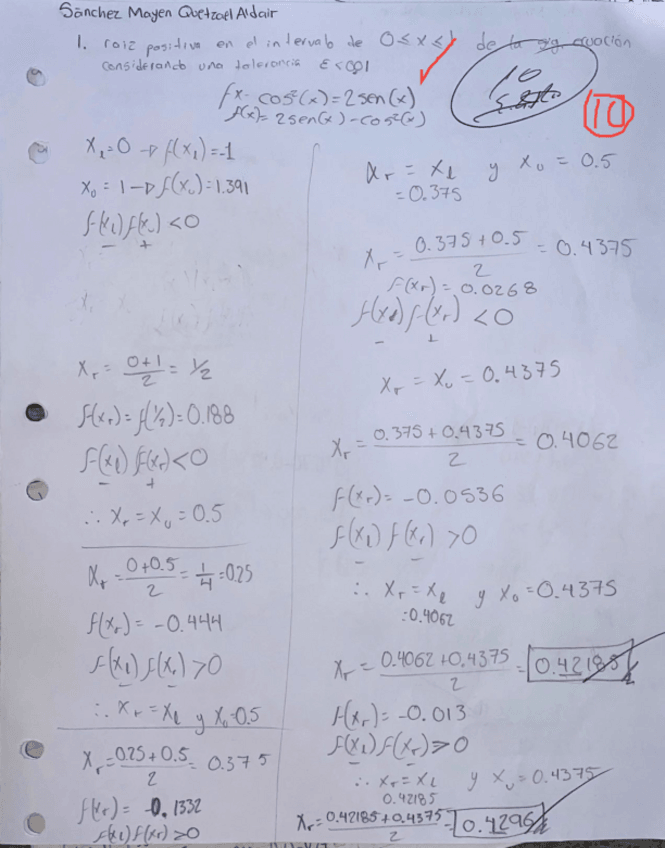 Sánchez Mayen Quetzael Aldair
1. raiz positiva en el intervalo de 0≤x≤1 de la sig. ecuación
considerando una tolerancia E<0.01
fx- cos²(x)=2sen(x)
f(x)=2sen(x)-cos²(x)
10
10
X_l=0 → f(x_l)=-1
X_u=1 → f(x_u)=1.391
f(x_l)f(x_u)<0
- +
X_r = 0+1/2 = 1/2
f(x_r)=f(1/2)=0.188
f(x_l) f(x_r)<0
- +
∴ X_r=X_u=0.5
X_r = 0+0.5/2 = 1/4 = 0.25
f(x_r)= -0.444
f(x_l) f(x_r)>0
- -
∴ X_r=X_l y X_u=0.5
X_r = 0.25+0.5/2 = 0.375
f(x_r)= -0.1332
f(x_l) f(x_r)>0
X_r = X_l y X_u = 0.5
=0.375
X_r = 0.375+0.5/2 = 0.4375
f(x_r)=0.0268
f(x_l) f(x_r) <0
- +
X_r = X_u = 0.4375
X_r = 0.375+0.4375/2 = 0.4062
f(x_r)= -0.0536
f(x_l) f(x_r) >0
- -
∴ X_r=X_l y X_u=0.4375
=0.4062
X_r = 0.4062+0.4375/2 = 0.42185
f(x_r)= -0.013
f(x_l) f(x_r)>0
- -
∴ X_r=X_l y X_u=0.4375
0.42185
X_r = 0.42185+0.4375/2 = 0.4296